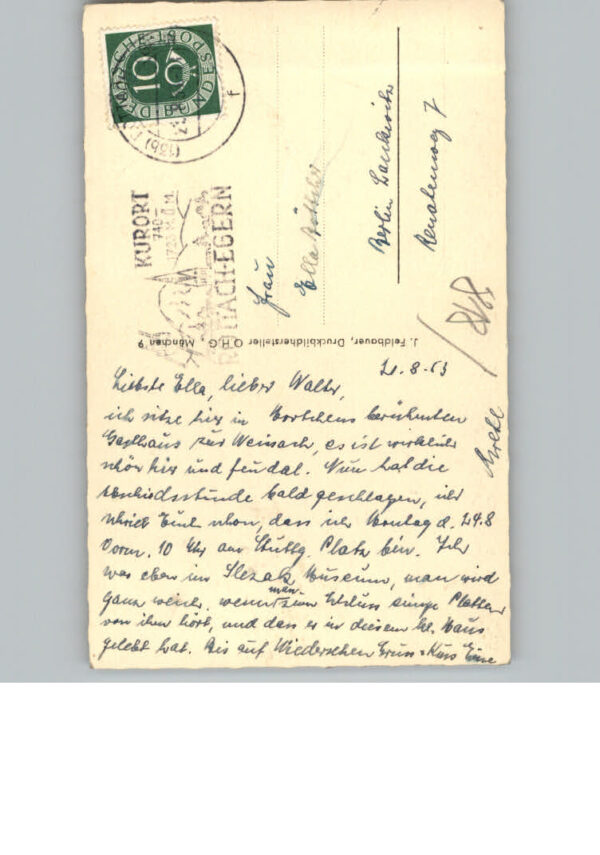 DEUTSCHE BUNDESPOST
10
(13b)
f
KURORT
740-
1722 M.Ü.M.
ROTTACH-EGERN
Frau
Ella Böttcher
Berlin Lankwitz
Renatenweg 7
J. Feldbauer, Druckbildhersteller O.H.G., München 9
21.8.53
Liebste Ella, lieber Walter,
ich sitze hier in berühmten
Gasthaus zur Weissach, es ist wirklich
schön hier und feudal. Nun hat die
Abschiedsstunde bald geschlagen, ich
schrieb Euch schon, dass ich Montag d. 24.8
Vorm. 10 Uhr am Stuttg. Platz bin. Ich
war eben im Slezak Museum, man wird
ganz weich, wenn man zum Schluss einige Platten
von ihm hört, und dass er in diesem kl. Haus
gelebt hat. Bis auf Wiedersehen Gruss + Kuss Eure